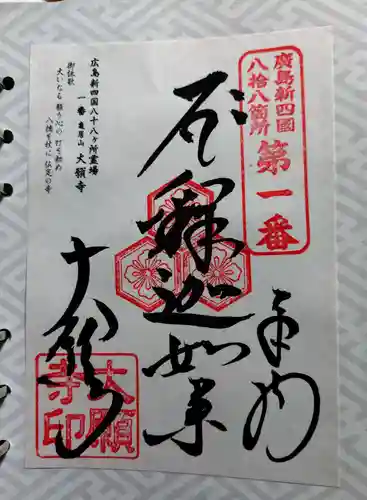 廣島新四國
八拾八箇所
第一番
奉納
釋迦如来
大願寺
広島新四国八十八ヶ所霊場
一番 亀居山 大願寺
御詠歌
大いなる 願う心の 打ち初め
八幡を杖に 伝足の寺
大願
寺印